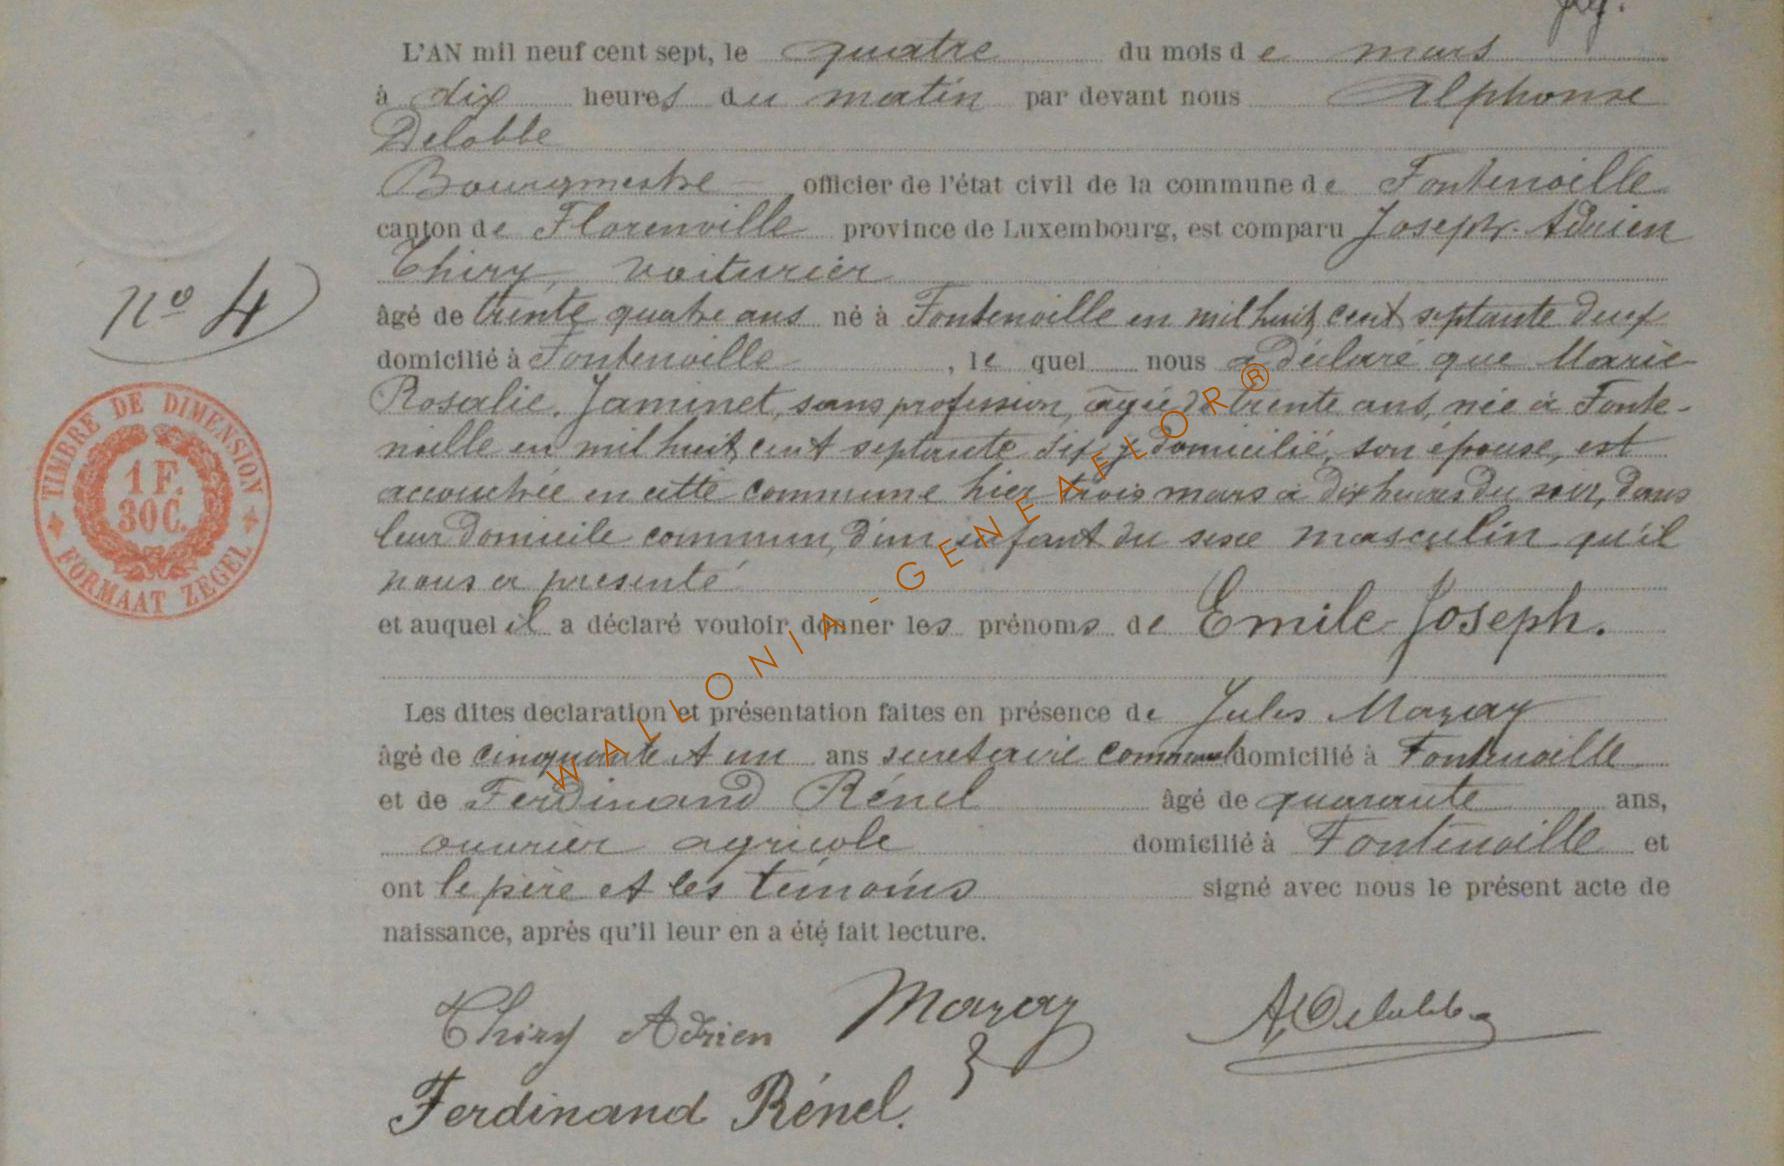 L'AN mil neuf cent sept, le quatre du mois de mars
à dix heures du matin par devant nous Alphonse
Delobbe
Bourgmestre officier de l'état civil de la commune de Fontenoille
canton de Florenville province de Luxembourg, est comparu Joseph-Adrien
Thiry, voiturier
âgé de trente quatre ans né à Fontenoille en mil huit cent septante deux
domicilié à Fontenoille, le quel nous a déclaré que Marie
Rosalie Jaminet, sans profession, agée de trente ans, née à Fonte-
noille en mil huit cent septante six y domicilié, son épouse, est
accouchée en cette commune hier trois mars à dix heures du soir, dans
leur domicile commun, d'un enfant du sexe masculin qu'il
nous a présenté
et auquel il a déclaré vouloir donner les prénoms de Emile Joseph.
Les dites declaration et présentation faites en présence de Jules Mazay
âgé de cinquante et un ans secretaire communal domicilié à Fontenoille
et de Ferdinand Rénel âgé de quarante ans,
ouvrier agricole domicilié à Fontenoille et
ont le père et les témoins signé avec nous le présent acte de
naissance, après qu'il leur en a été fait lecture.
Thiry Adrien Mazay A. Delobbe
Ferdinand Rénel.
n° 4
TIMBRE DE DIMENSION
1 F.
30 C.
FORMAAT ZEGEL
WALLONIA-GENEAFLOR®